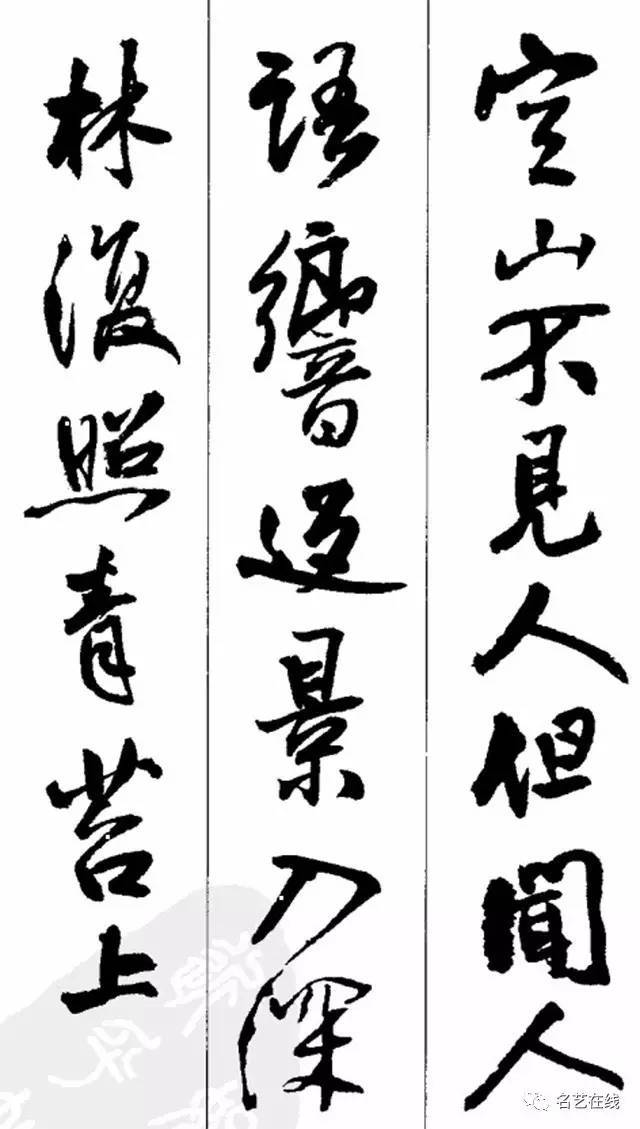 空山不見人但聞人
語響返景入深
林復照青苔上
名艺在线